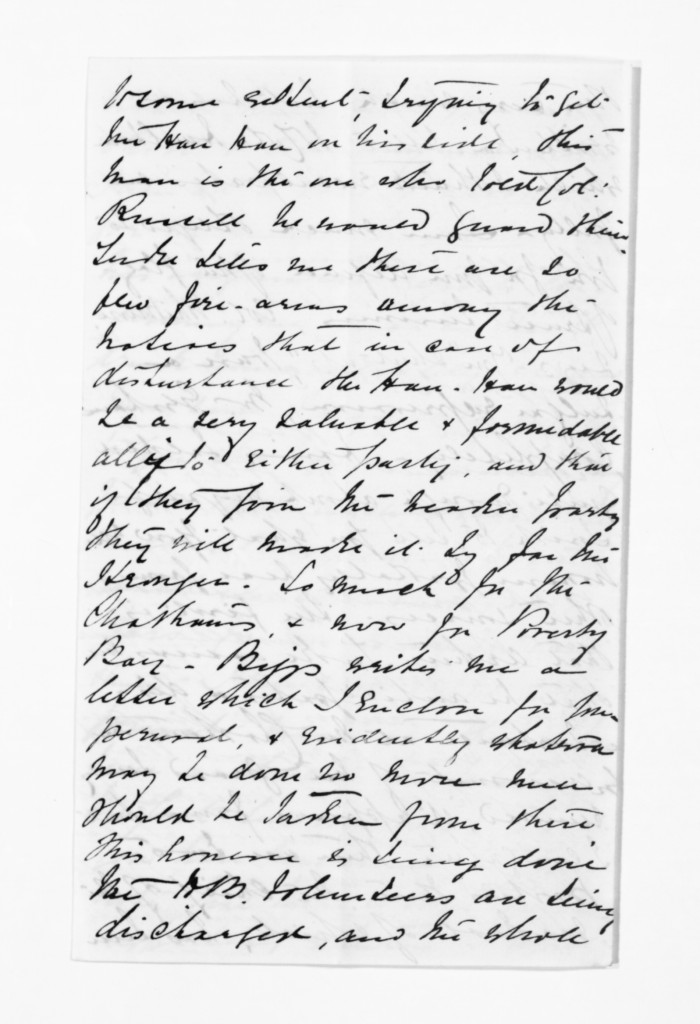 to some extent, trying to get
the Hau Hau on his side, this
man is the one who told Col:
Russell he would guard them.
Tuke tells me there are so
few fire-arms among the
natives that in case of
disturbance the Hau-Hau would
be a very valuable & formidable
ally to either party, and that
if they join the weaker party
they will make it by far the
stronger. So much for the
Chathams, & now for Poverty
Bay - Biggs writes me a
letter which I enclose for your
perusal, & evidently whatever
may be done no more men
should be taken from there
this however is being done
the H.B. Volunteers are being
discharged, and the whole